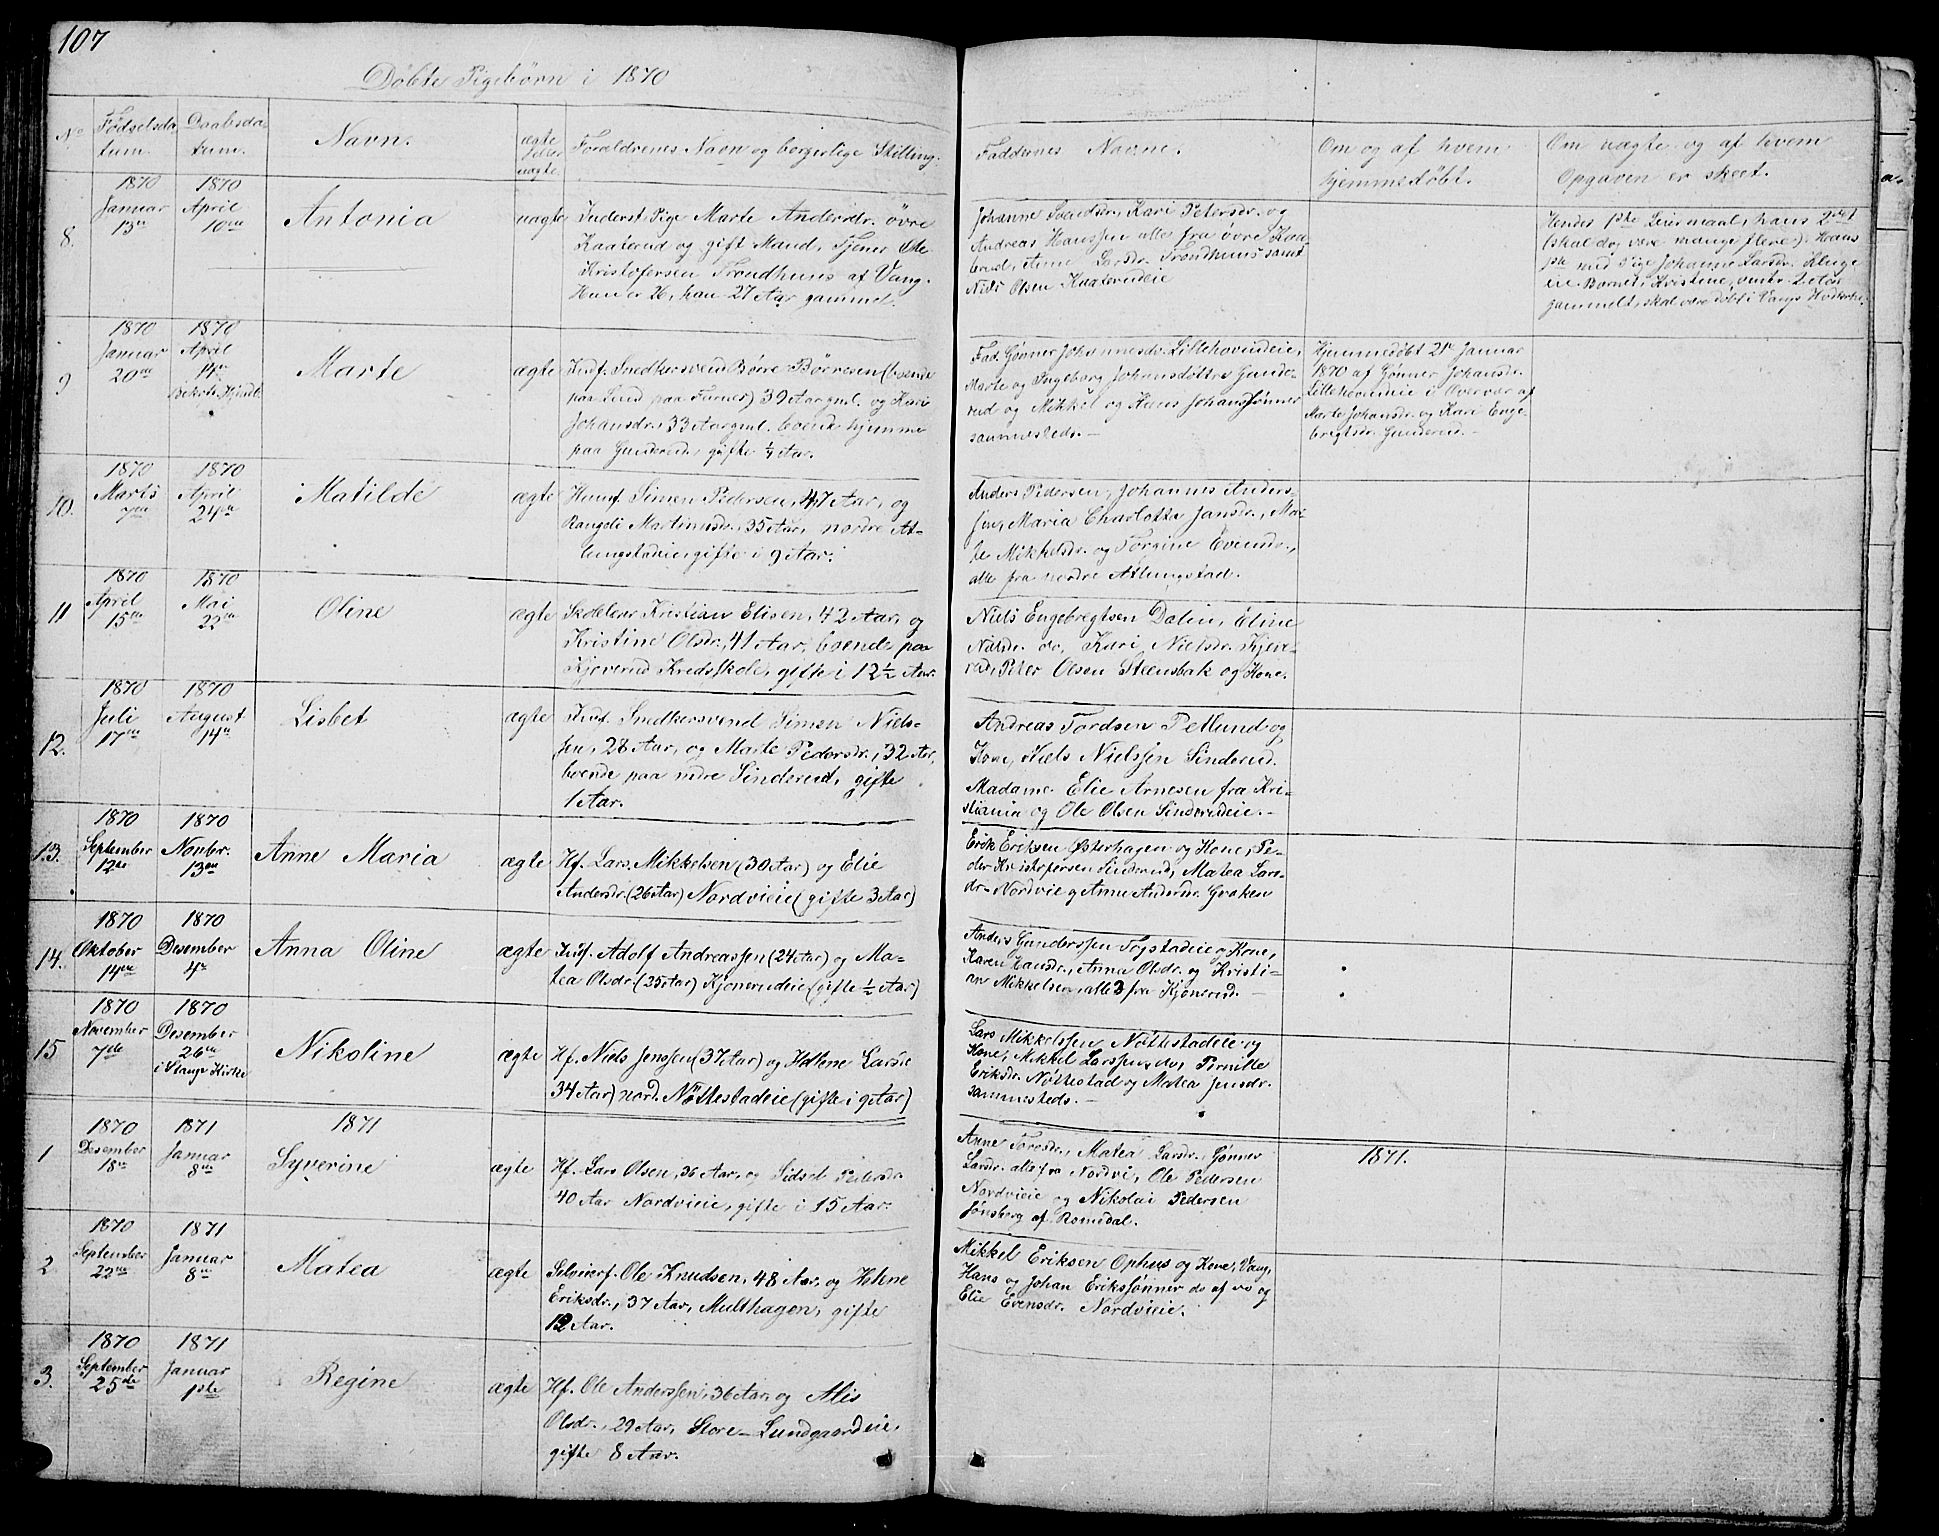 107
Döbte Pigebörn i 1870
No
Fødselsda-
tum.
Daabsda-
tum.
Navn.
ægte
eller
uægte
Foraldrenes Navn og borgerlige Stilling.
Faddernes Navne.
Om og af hvem
hjemmedöbt.
Om uægte og af hvem
Opgaven er skeet.
8.
1870
Januar
13de
1870
April
10de
Antonia
uagte
Inderst, Pige Marte Andersdr. övre
Kaaterud og gift Mand, Tjener Ole
Kristofersen Trondhuus af Vang.
Hun er 26, han 27 Aar gammel.
Johanne Svendsdr., Kari Petersdr. og
Andreas Hanssen alle fra övre Kaa-
terud, Anne Larsdr. Trondhuus samt
Niels Olsen Kaaterudeie
Hendes 1ste Leiermaal, hans 2det
(skal dog være mange flere). Hans
1ste med Pige Johanne Larsdr. Kluge
eie Barnet, Kristine, omtr. 2 Aar
gammelt, skal være döbt i Vangs Hovedkirke.
9
1870
Januar
20de
1870
April
14de
Bekræft. Hjdb.
Marte
ægte
Indf. Snedkersvend Börre Börresen (boende
paa Lund paa Furnes) 39 Aar gml. og Kari
Johansdr., 33 Aar gml. boende hjemme
paa Gunderud, gifte ¼ Aar.
Fad. Gönner Johannesdr. Lillehovindeie,
Marte og Ingeborg Johansdøttre Gunde-
rud og Mikkel og Hans Johanssönner
sammesteds.
Hjemmedöbt 21de Januar
1870 af Gönner Johansdr.
Lillehovindeie i Overvær af
Marte Johansdr. og Kari Enge-
bregtsdr. Gunderud.
10.
1870
Marts
7de
1870
April
24de
Matilde
ægte
Huusf. Simen Pedersen, 47 Aar, og
Rangdi Martinusdr., 35 Aar, nordre At-
lungstadeie, gifte i 9 Aar.
Anders Pedersen, Johannes Anders-
sen, Maria Charlotta Jansdr., Mar-
te Mikkelsdr. og Torgine Evensdr.,
alle fra nordre Atlungstad.
11
1870
April
15de
1870
Mai
22de
Oline
ægte
Skolelærer Kristian Elisen, 42 Aar, og
Kristine Olsdr., 41 Aar, boende paa
Kjoverud Kredsskole, gifte i 12½ Aar.
Niels Engebregtsen Dalin, Eline
Nilsdr. do, Kari Nielsdr. Kjeve-
rud, Peter Olsen Steensbak og Kone.
12.
1870
Juli
17de
1870
August
14de
Lisbet
ægte
Indf. Snedkersvend Simen Niels-
sen, 28 Aar, og Marte Pedersdr., 32 Aar,
boende paa nedre Sinderud, gifte
1 Aar.
Andreas Tordsen Petlund og
Kone, Niels Nielssen Sinderud.
Madame Elie Arnesen fra Kri-
stiania og Ole Olsen Sinderudeie.
13.
1870
September
12te
1870
Novbr.
13de
Anne Maria
ægte
Hf. Lars Mikkelsen (30 Aar) og Elie
Andersdr (26 Aar) Nordvieie (gifte 3 Aar)
Erik Eriksen Østerhagen og Kone, Pe-
der Kristofersen Sinderud, Matea Lars-
dr. Nordvie og Anne Andersdr. Graken
14.
1870
Oktober
14de
1870
Desember
4de
Anna Oline
ægte
Indf. Adolf Andreassen (24 Aar) og Ma-
tea Olsdr. (25 Aar) Kjonerudeie (gifte ½ Aar)
Anders Gunderssen Frystadeie og Kone,
Karen Hansdr., Anna Olsdr. og Kristi-
an Mikkelsen, alle 3 fra Kjonerud.
15
1870
November
7de
1870
Desember
26de
i Stange Kirke
Nikoline
ægte
Hf. Niels Jenssen (37 Aar) og Helene Larsdr
34 Aar) nord. Nöttestadeie (gifte i 9 Aar)
Lars Mikkelssen Nöttestadeie og
Kone, Mikkel Larssen, do, Pernille
Eriksdr. Nöttestad og Matea Jensdr.
sammesteds.
1871
1871.
1
1870
Desember
18de
1871
Januar
8de
Syverine
ægte
Hf. Lars Olsen, 36 Aar, og Sidsel Pedersdr.
40 Aar Nordvieie, gifte i 15 Aar.
Anne Toresdr., Matea Larsdr., Gönner
Larsdr. alle fra Nordvi, Ole Pedersen
Nordvieie og Nikolai Pedersen
Jönsberg af Romedal.
2
1870
September
22de
1871
Januar
8de
Matea
ægte
Selveierf. Ole Knudsen, 48 Aar, og Helene
Eriksdr., 37 Aar, Multhagen, gifte
12 Aar.
Mikkel Eriksen Ophus og Kone, Vang,
Hans og Johan Erikssönner do af do og
Elie Evensdr. Nordvieie.
3.
1870
September
25de
1871
Januar
1ste
Regine
ægte
Hf. Ole Anderssen, 36 Aar, og Alis
Olsdr., 29 Aar, Store-Lundgaardeie,
gifte 8 Aar.